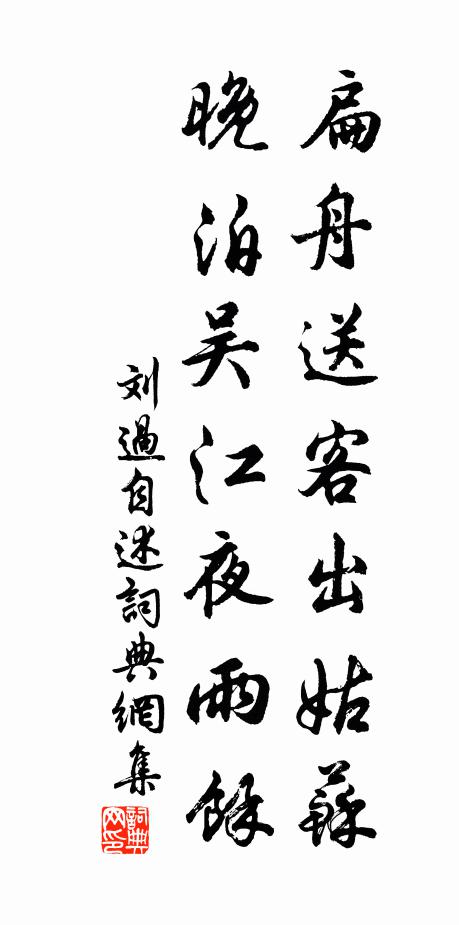 扁舟送客出姑蘇
晚泊吴江夜雨餘
刘過自述詞典網集
詞典网印